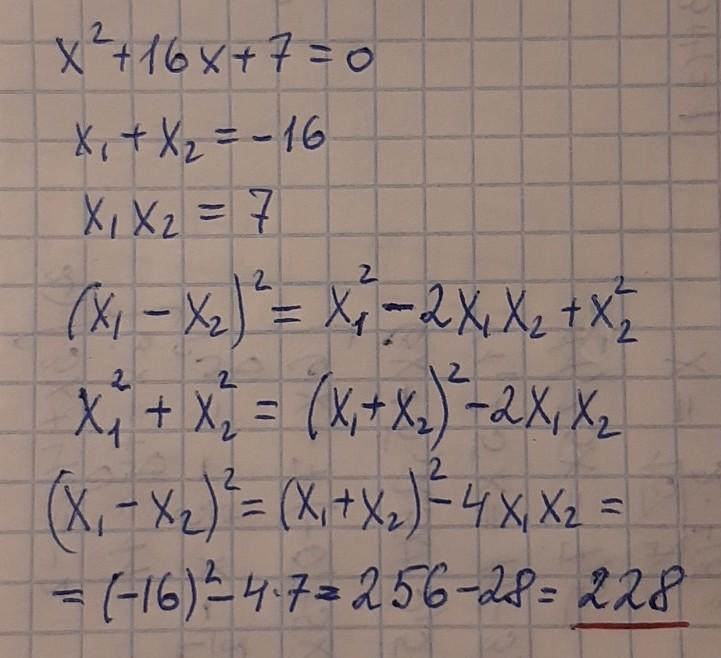 x²+16x+7=0
x₁+x₂=-16
x₁x₂=7
(x₁-x₂)²=x₁²-2x₁x₂+x₂²
x₁²+x₂²=(x₁+x₂)²-2x₁x₂
(x₁-x₂)²=(x₁+x₂)²-4x₁x₂=
=(-16)²-4·7=256-28=228